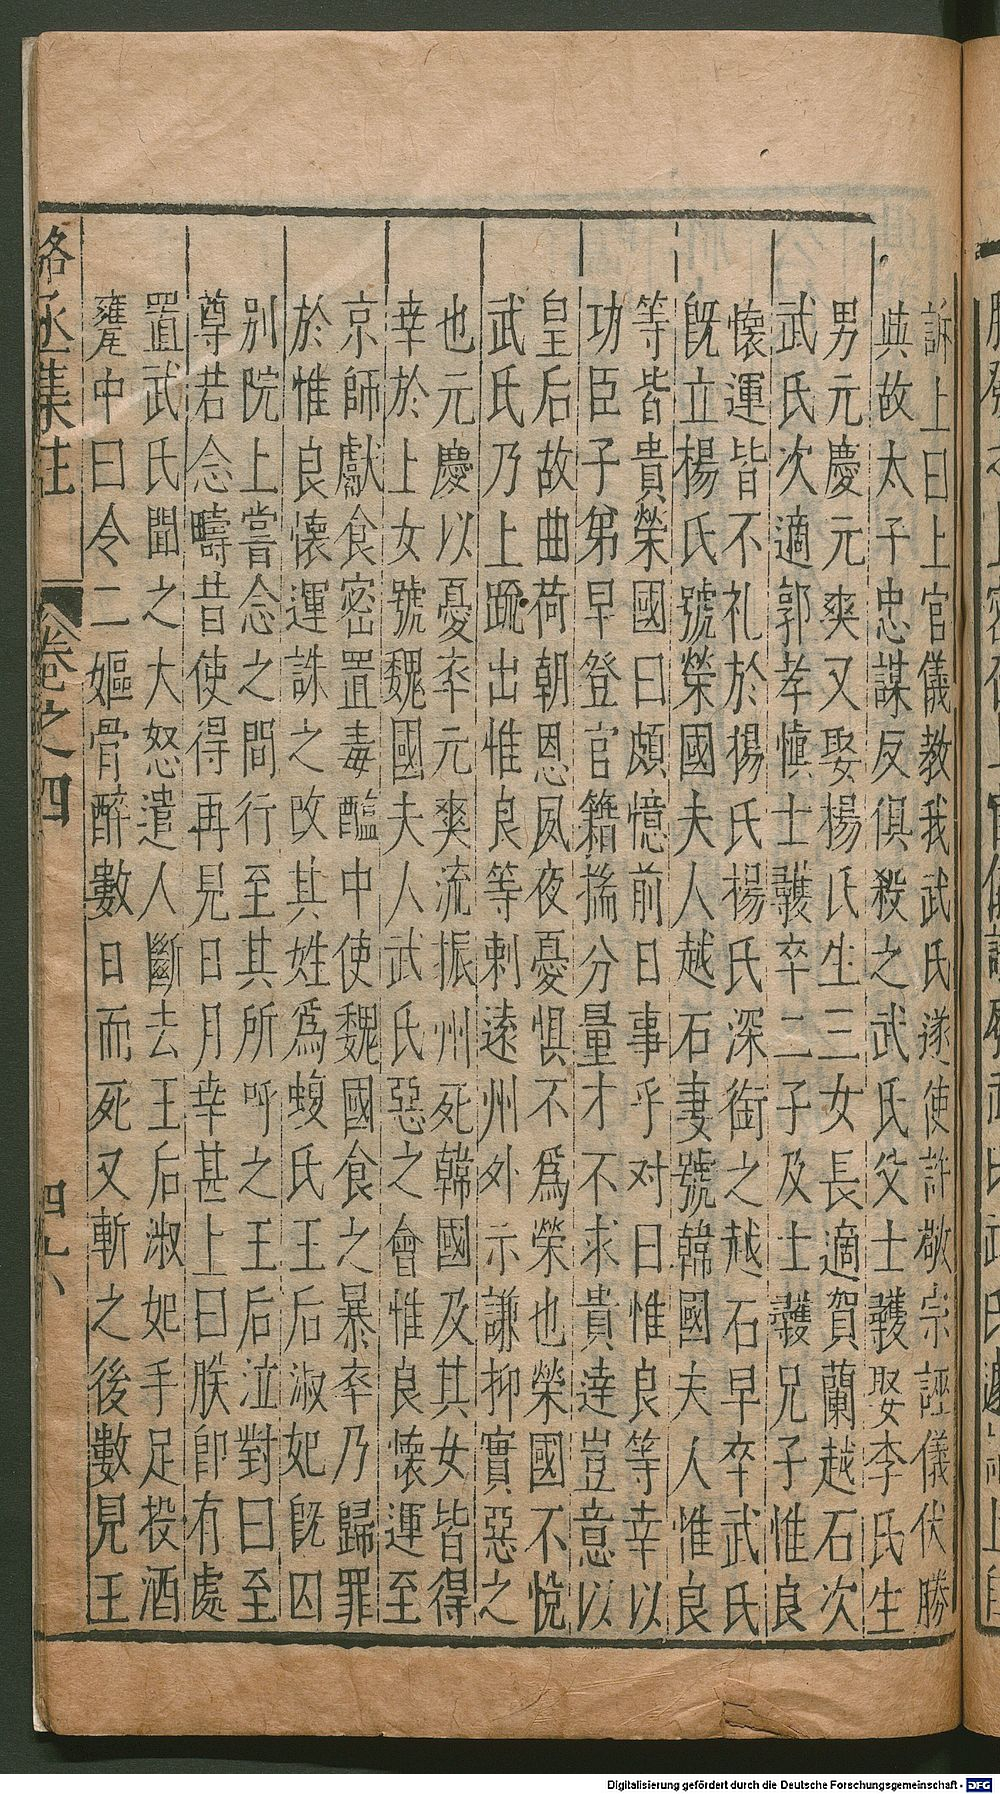 訴上曰上官儀教我武氏遂使許敬宗誣儀伏勝
與故太子忠謀反俱殺之武氏父士彠娶李氏生
男元慶元爽又娶楊氏生三女長適賀蘭越石次
武氏次適郭孝慎士彠卒二子及士彠兄子惟良
懷運皆不礼於楊氏楊氏深銜之越石早卒武氏
旣立楊氏號榮國夫人越石妻號韓國夫人惟良
等皆貴榮國曰頗憶前日事乎对曰惟良等幸以
功臣子弟早登官籍揣分量才不求貴達豈意以
皇后故曲荷朝恩夙夜憂惧不為榮也榮國不悅
武氏乃上疏出惟良等剌遠州外示謙抑實惡之
也元慶以憂卒元爽流振州死韓國及其女皆得
幸於上女號魏國夫人武氏惡之會惟良懷運至
京師獻食密置毒醢中使魏國食之暴卒乃歸罪
於惟良懷運誅之改其姓為蝮氏王后淑妃旣囚
別院上嘗念之間行至其所呼之王后泣對曰至
尊若念疇昔使得再見日月幸甚上曰朕卽有處
置武氏聞之大怒遣人斷去王后淑妃手足投酒
甕中曰令二嫗骨醉數日而死又斬之後數見王
駱丞集註 卷之四 四十八
Digitalisierung gefördert durch die Deutsche Forschungsgemeinschaft - DFG